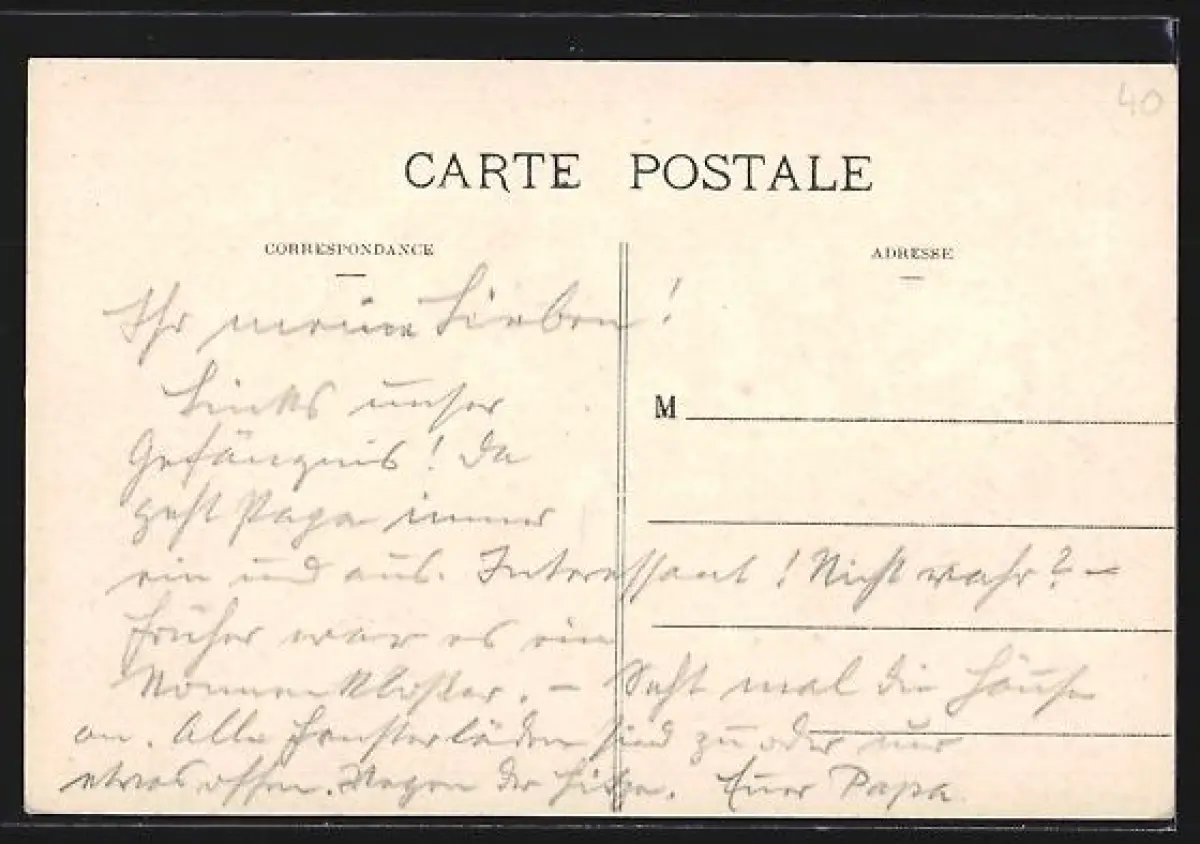 40
CARTE POSTALE
CORRESPONDANCE
ADRESSE
Ihr meine Lieben!
Links unser
Gefängnis! Da
geht Papa immer
ein und aus. Interessant! Nicht wahr? –
Früher war es ein
Nonnenkloster. – Seht mal die Häuser
an. Alle Fensterläden sind zu oder nur
etwas offen. Wegen der Hitze. Euer Papa
M